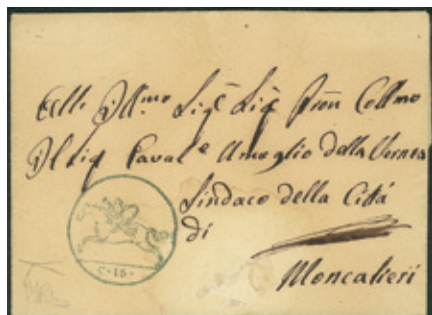 All. Ill.mo Sig.e Sig.e Pron Colmo
Il Sig Caval.e Ameglio della Vernea
Sindaco della Città
di
Moncalieri
C. 15.